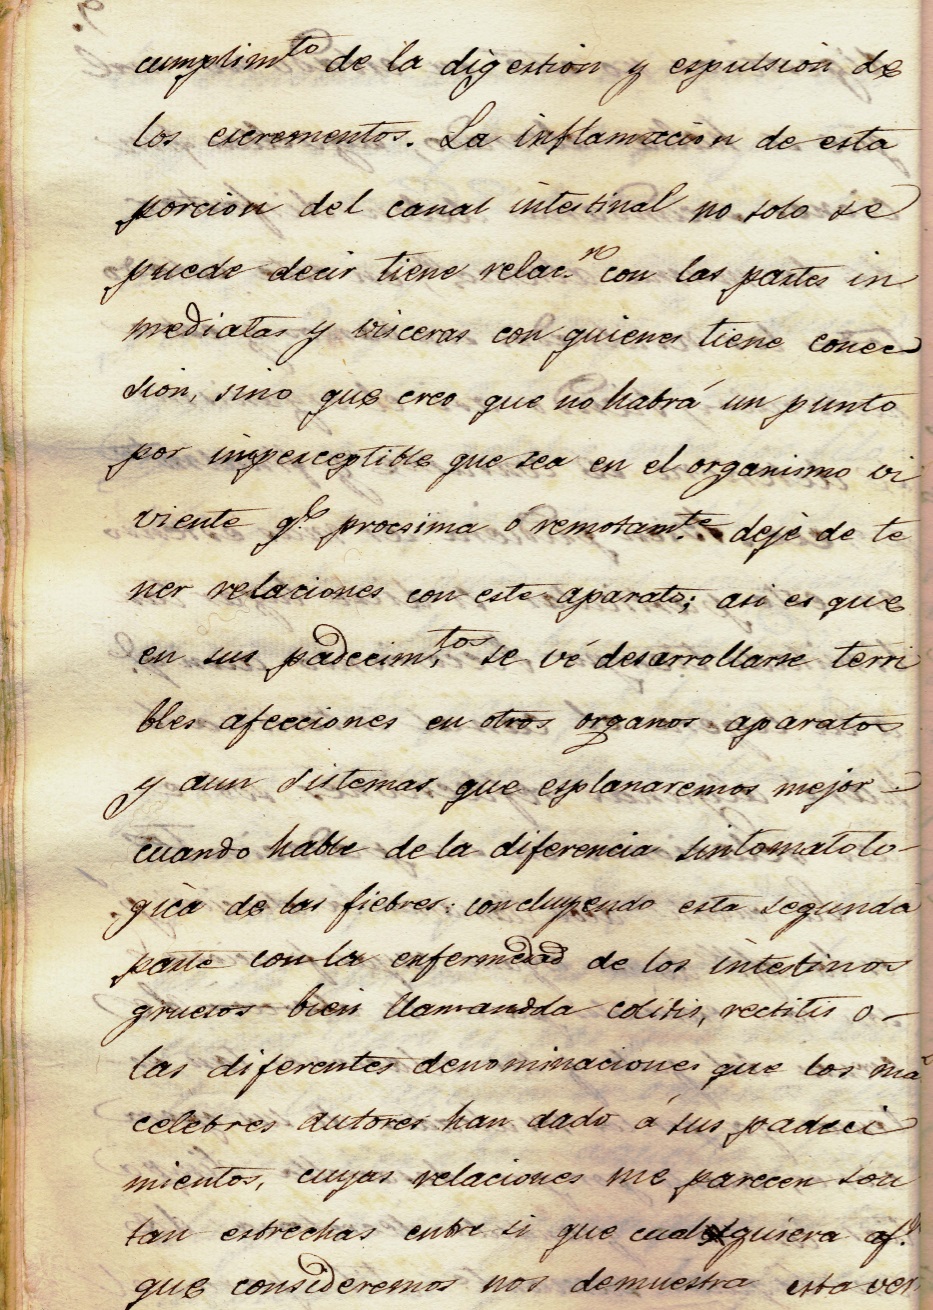 cumplimto de la digestion y espulsion de
los escrementos. La inflamacion de esta
porcion del canal intestinal no solo se
puede decir tiene relac.n con las partes in
mediatas y visceras con quienes tiene conec
sion, sino que creo que no habrá un punto
por imperceptible que sea en el organismo vi
viente qe procsima ó remotam.te deje de te
ner relaciones con este aparato; asi es que
en sus padecim.tos se vé desarrollarse terri
bles afecciones en otros organos aparatos
y aun sistemas que esplanaremos mejor
cuando hable de la diferencia sintomatolo-
gica de las fiebres: concluyendo esta segunda
parte con la enfermedad de los intestinos
gruesos bien llamandda colitis, rectitis o
las diferentes denominaciones que los mas
celebres autores han dado á sus padeci
mientos, cuyas relaciones me parecen son
tan estrechas entre si que cualesquiera
que consideremos nos demuestra esta ver